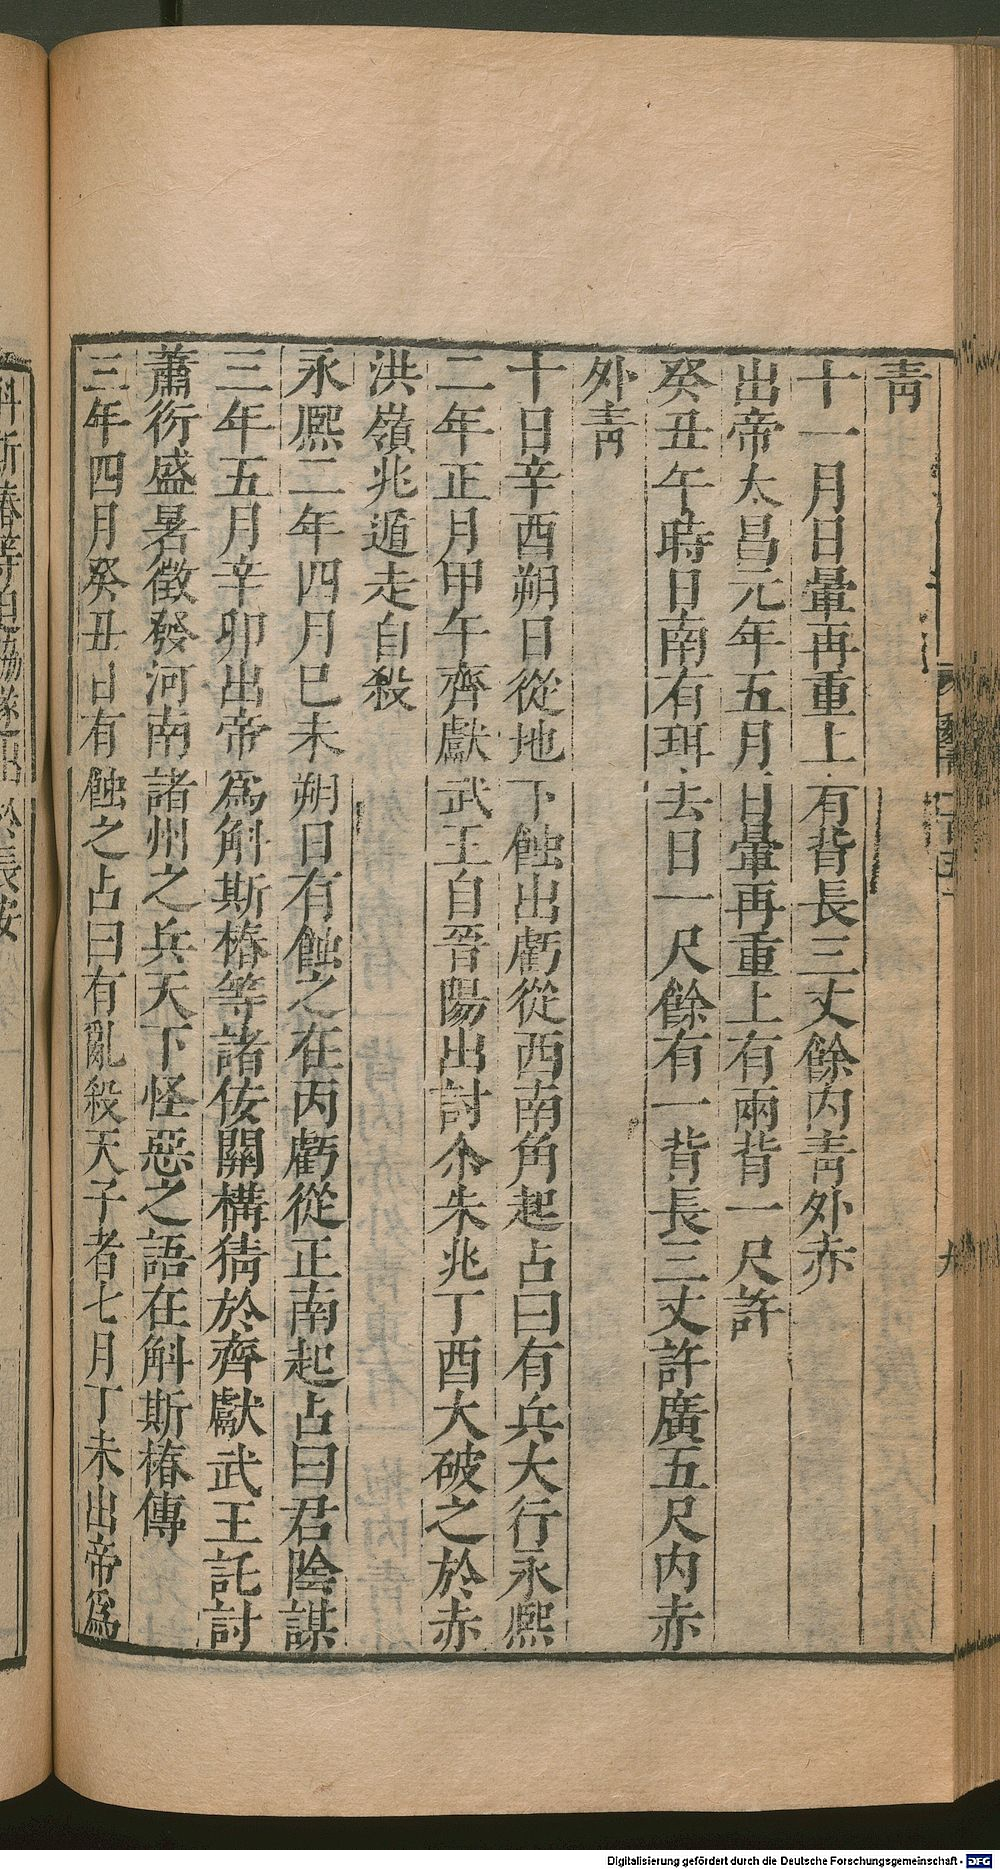 靑
十一月日暈再重上有背長三丈餘内靑外赤
出帝太昌元年五月日暈再重上有兩背一尺許
癸丑午時日南有珥去日一尺餘有一背長三丈許廣五尺内赤
外靑
十日辛酉朔日從地下蝕出虧從西南角起占曰有兵大行永熙
二年正月甲午齊獻武王自晉陽出討尒朱兆丁酉大破之於赤
洪嶺兆遁走自殺
永熙二年四月巳未朔日有蝕之在丙虧從正南起占曰君陰謀
三年五月辛卯出帝爲斛斯椿等諸佞關構猜於齊獻武王託討
蕭衍盛暑徵發河南諸州之兵天下怪惡之語在斛斯椿傳
三年四月癸丑日有蝕之占曰有亂殺天子者七月丁未出帝爲
斛斯椿等迫脇遂出於長安
九
Digitalisierung gefördert durch die Deutsche Forschungsgemeinschaft - DFG